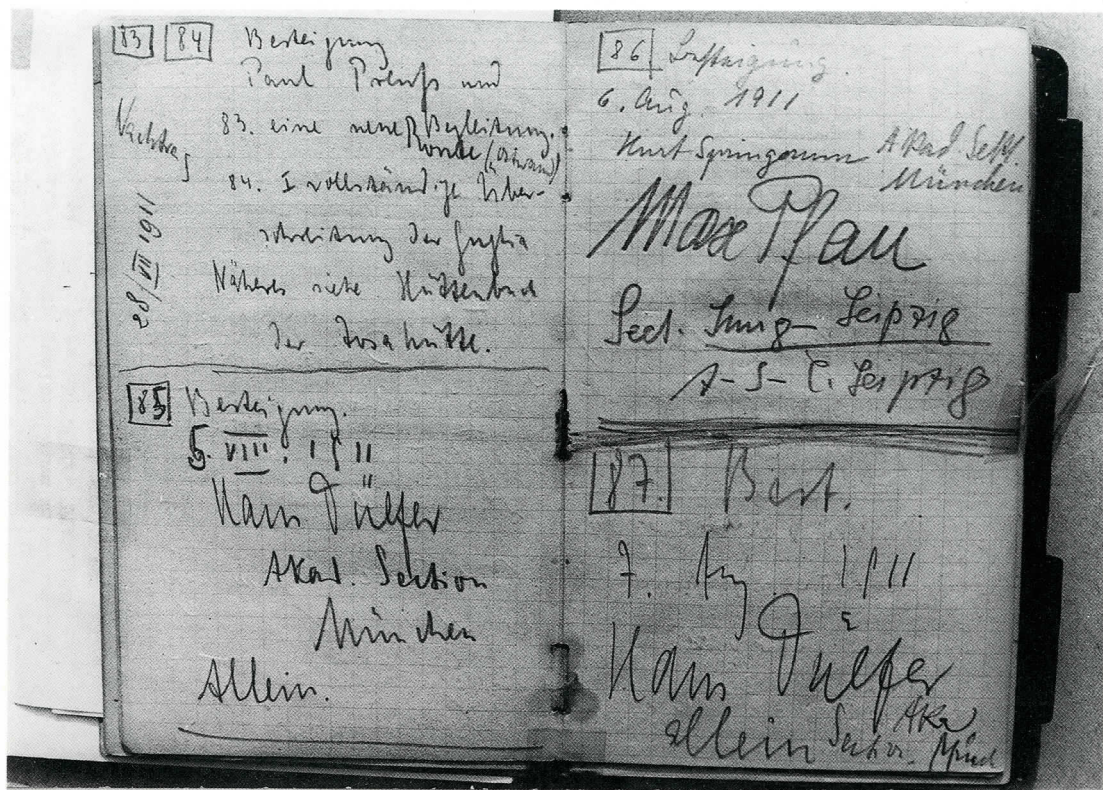 83 84 Besteigung
Paul Preuß und
83. eine neue Begleitung.
Route (Ostwand)
84. I vollständige Über-
schreitung der Guglia
Näheres siehe Hüttenbuch
der Tosahütte.
Nachtrag
28/VII 1911
85 Besteigung.
5. VIII. 1911
Hans Dülfer
Akad. Section
München
Allein.
86 Besteigung.
6. Aug. 1911
Kurt Springorum Akad. Sekt.
München
Max Pfau
Sect. Jung-Leipzig
A-S-C. Leipzig
87. Best.
7. Aug 1911
Hans Dülfer
allein Section Akad
Münch